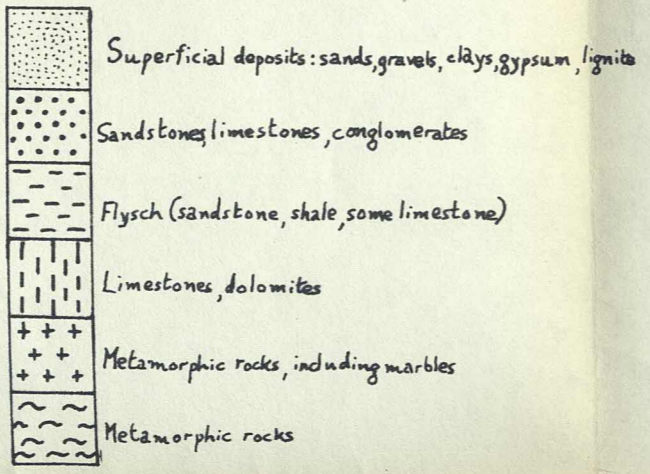 Superficial deposits: sands, gravels, clays, gypsum, lignite
Sandstones, limestones, conglomerates
Flysch (sandstone, shale, some limestone)
Limestones, dolomites
Metamorphic rocks, including marbles
Metamorphic rocks